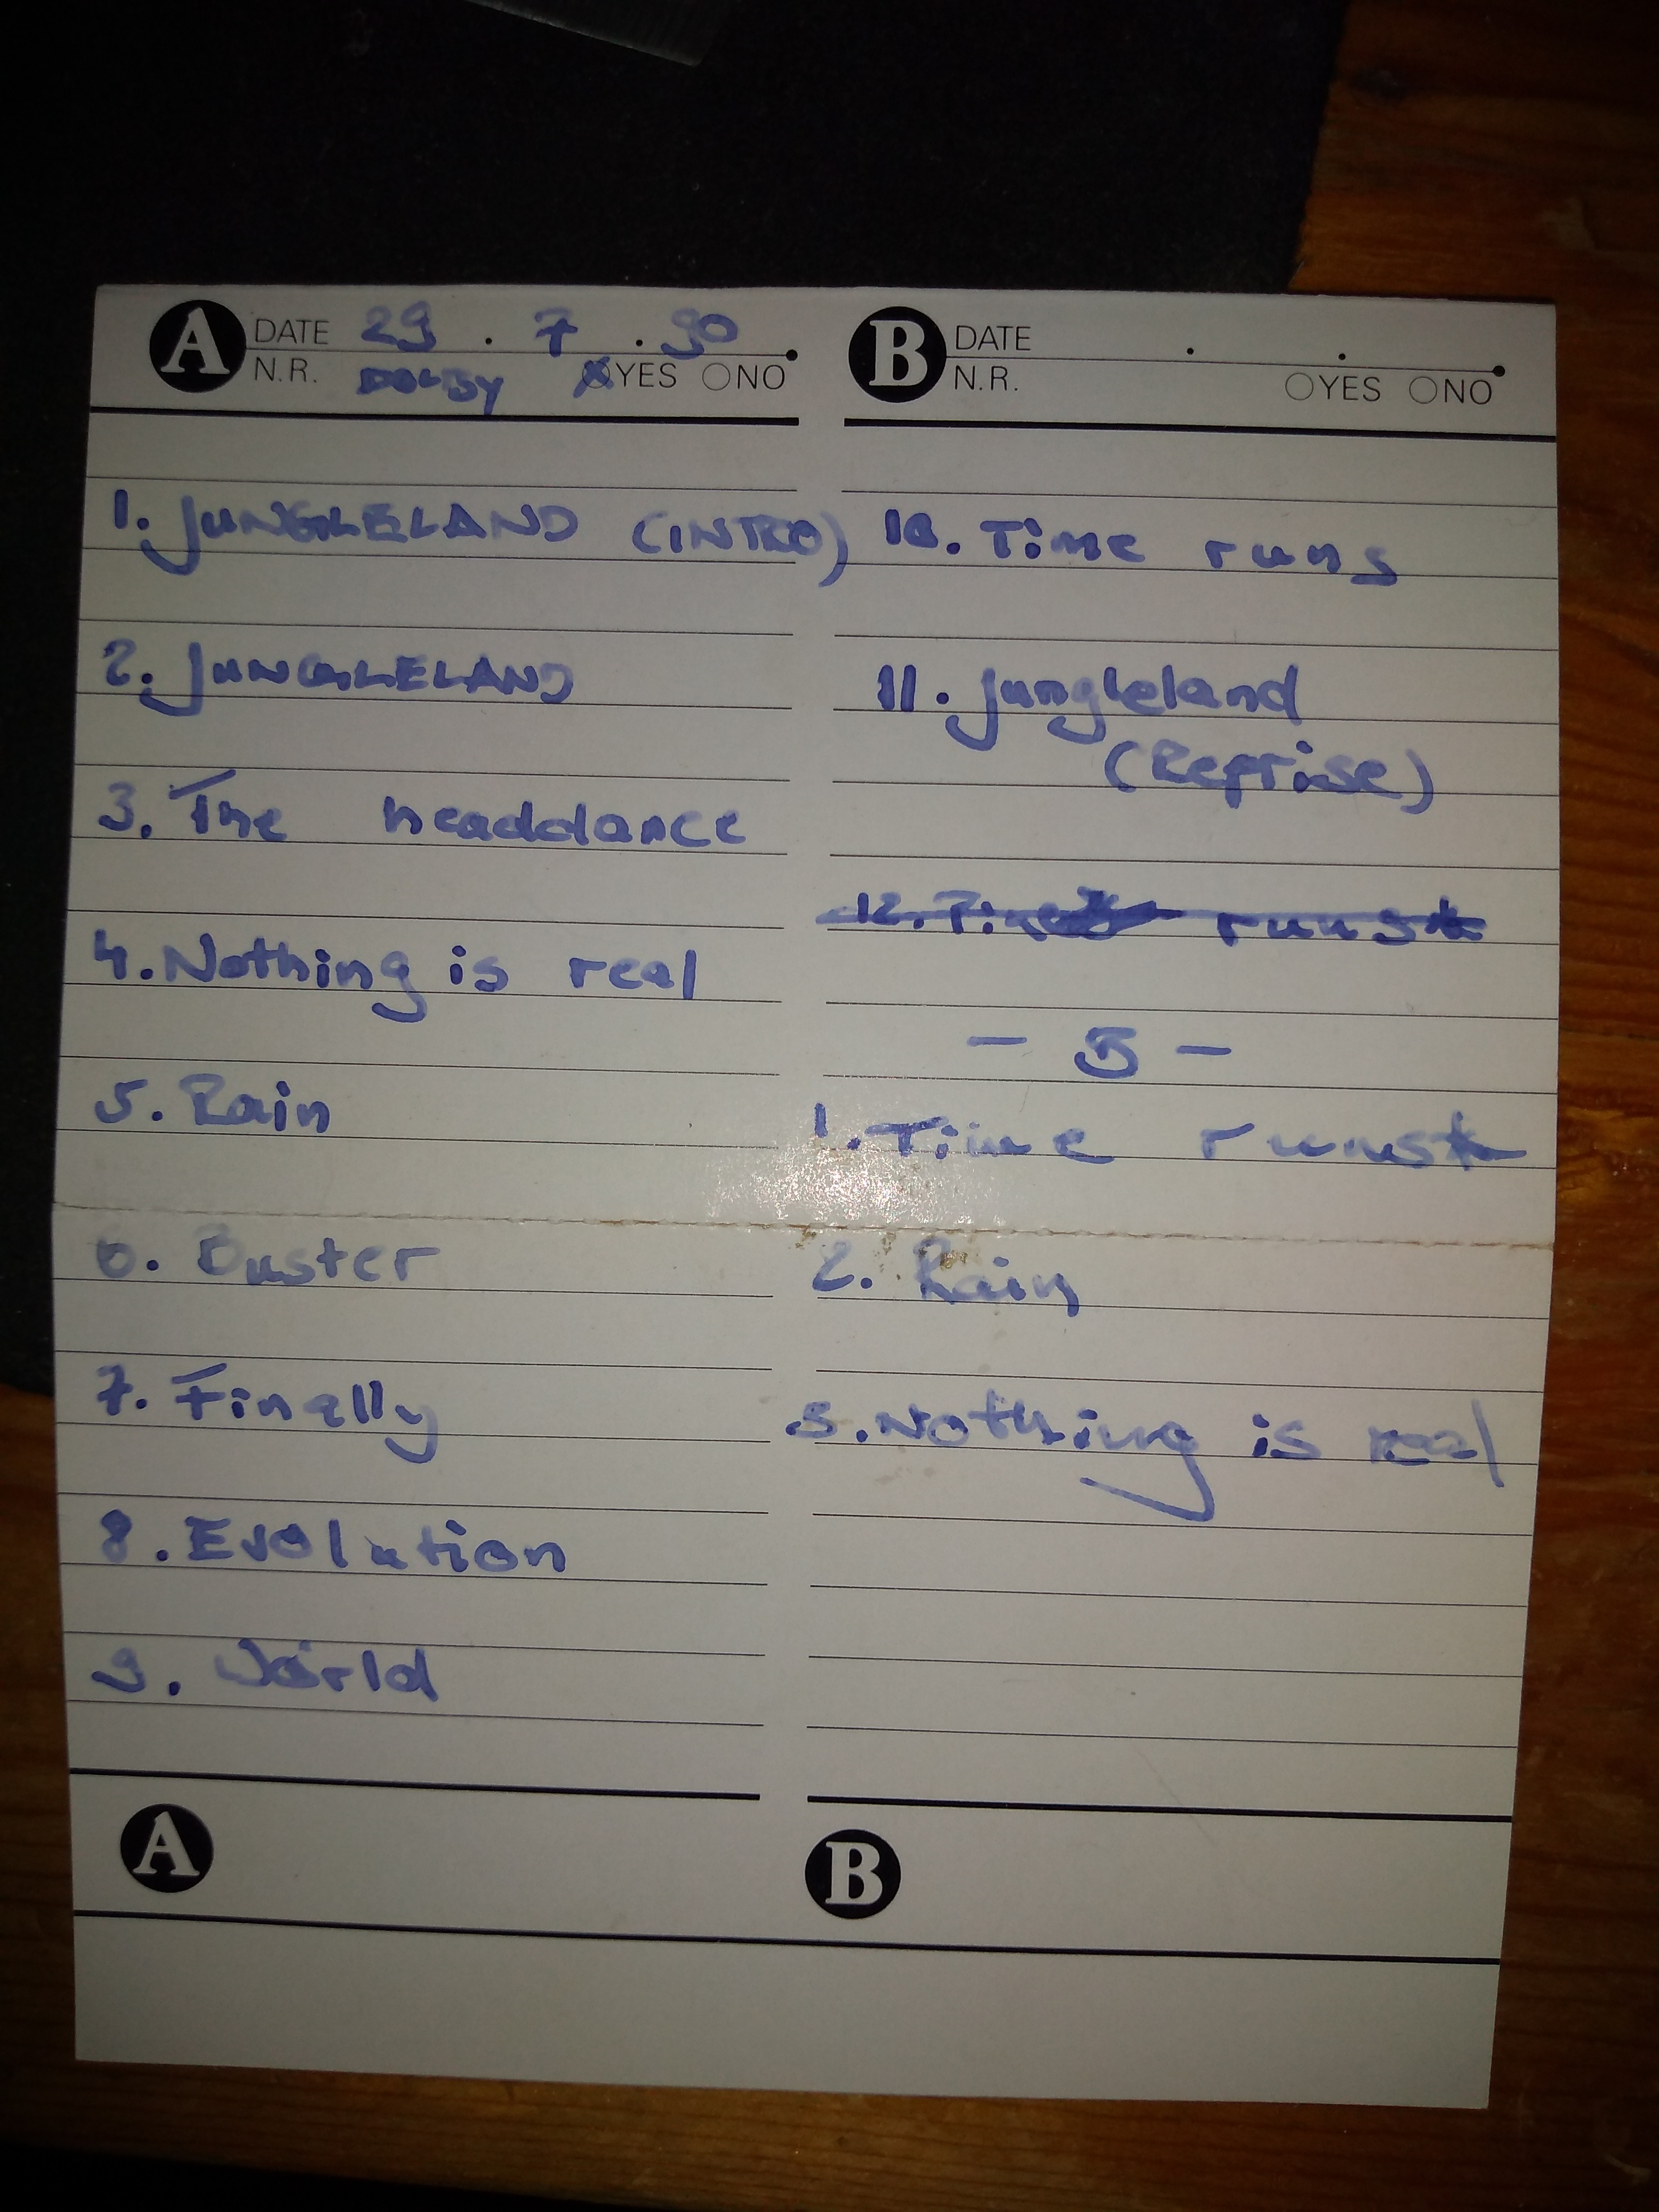 A DATE 29 . 7 . 90
N.R. DOLBY YES NO
1. JUNGLELAND (INTRO)
2. JUNGLELAND
3. The headdance
4. Nothing is real
5. Rain
6. Buster
7. Finally
8. Evolution
9. World
A
B DATE . .
N.R. YES NO
10. Time runs
11. jungleland
(Reprise)
12. Time runs
- 5 -
1. Time runs
2. Rain
3. Nothing is real
B